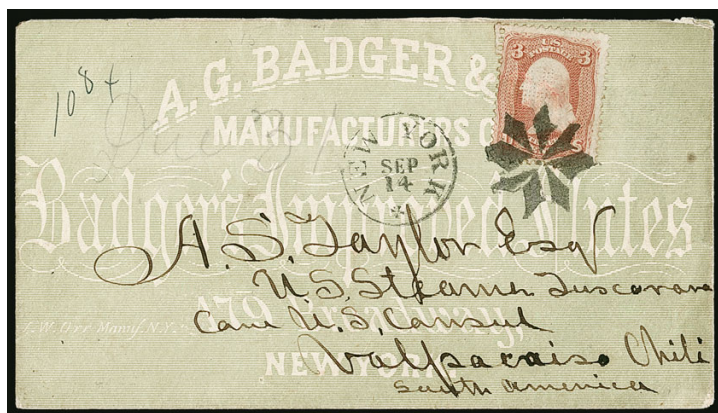 A. G. BADGER &
MANUFACTURERS O
Badger's Improved Flutes
179 Broadway,
NEW YORK
J. W. Orr Manuf. N.Y.
108 4
Due 3
NEW YORK
SEP
14
U.S.
POSTAGE
3 3
A. S. Taylor Esq
U. S. Steamer Tuscarora
Care U. S. Consul
Valparaiso Chili
South America